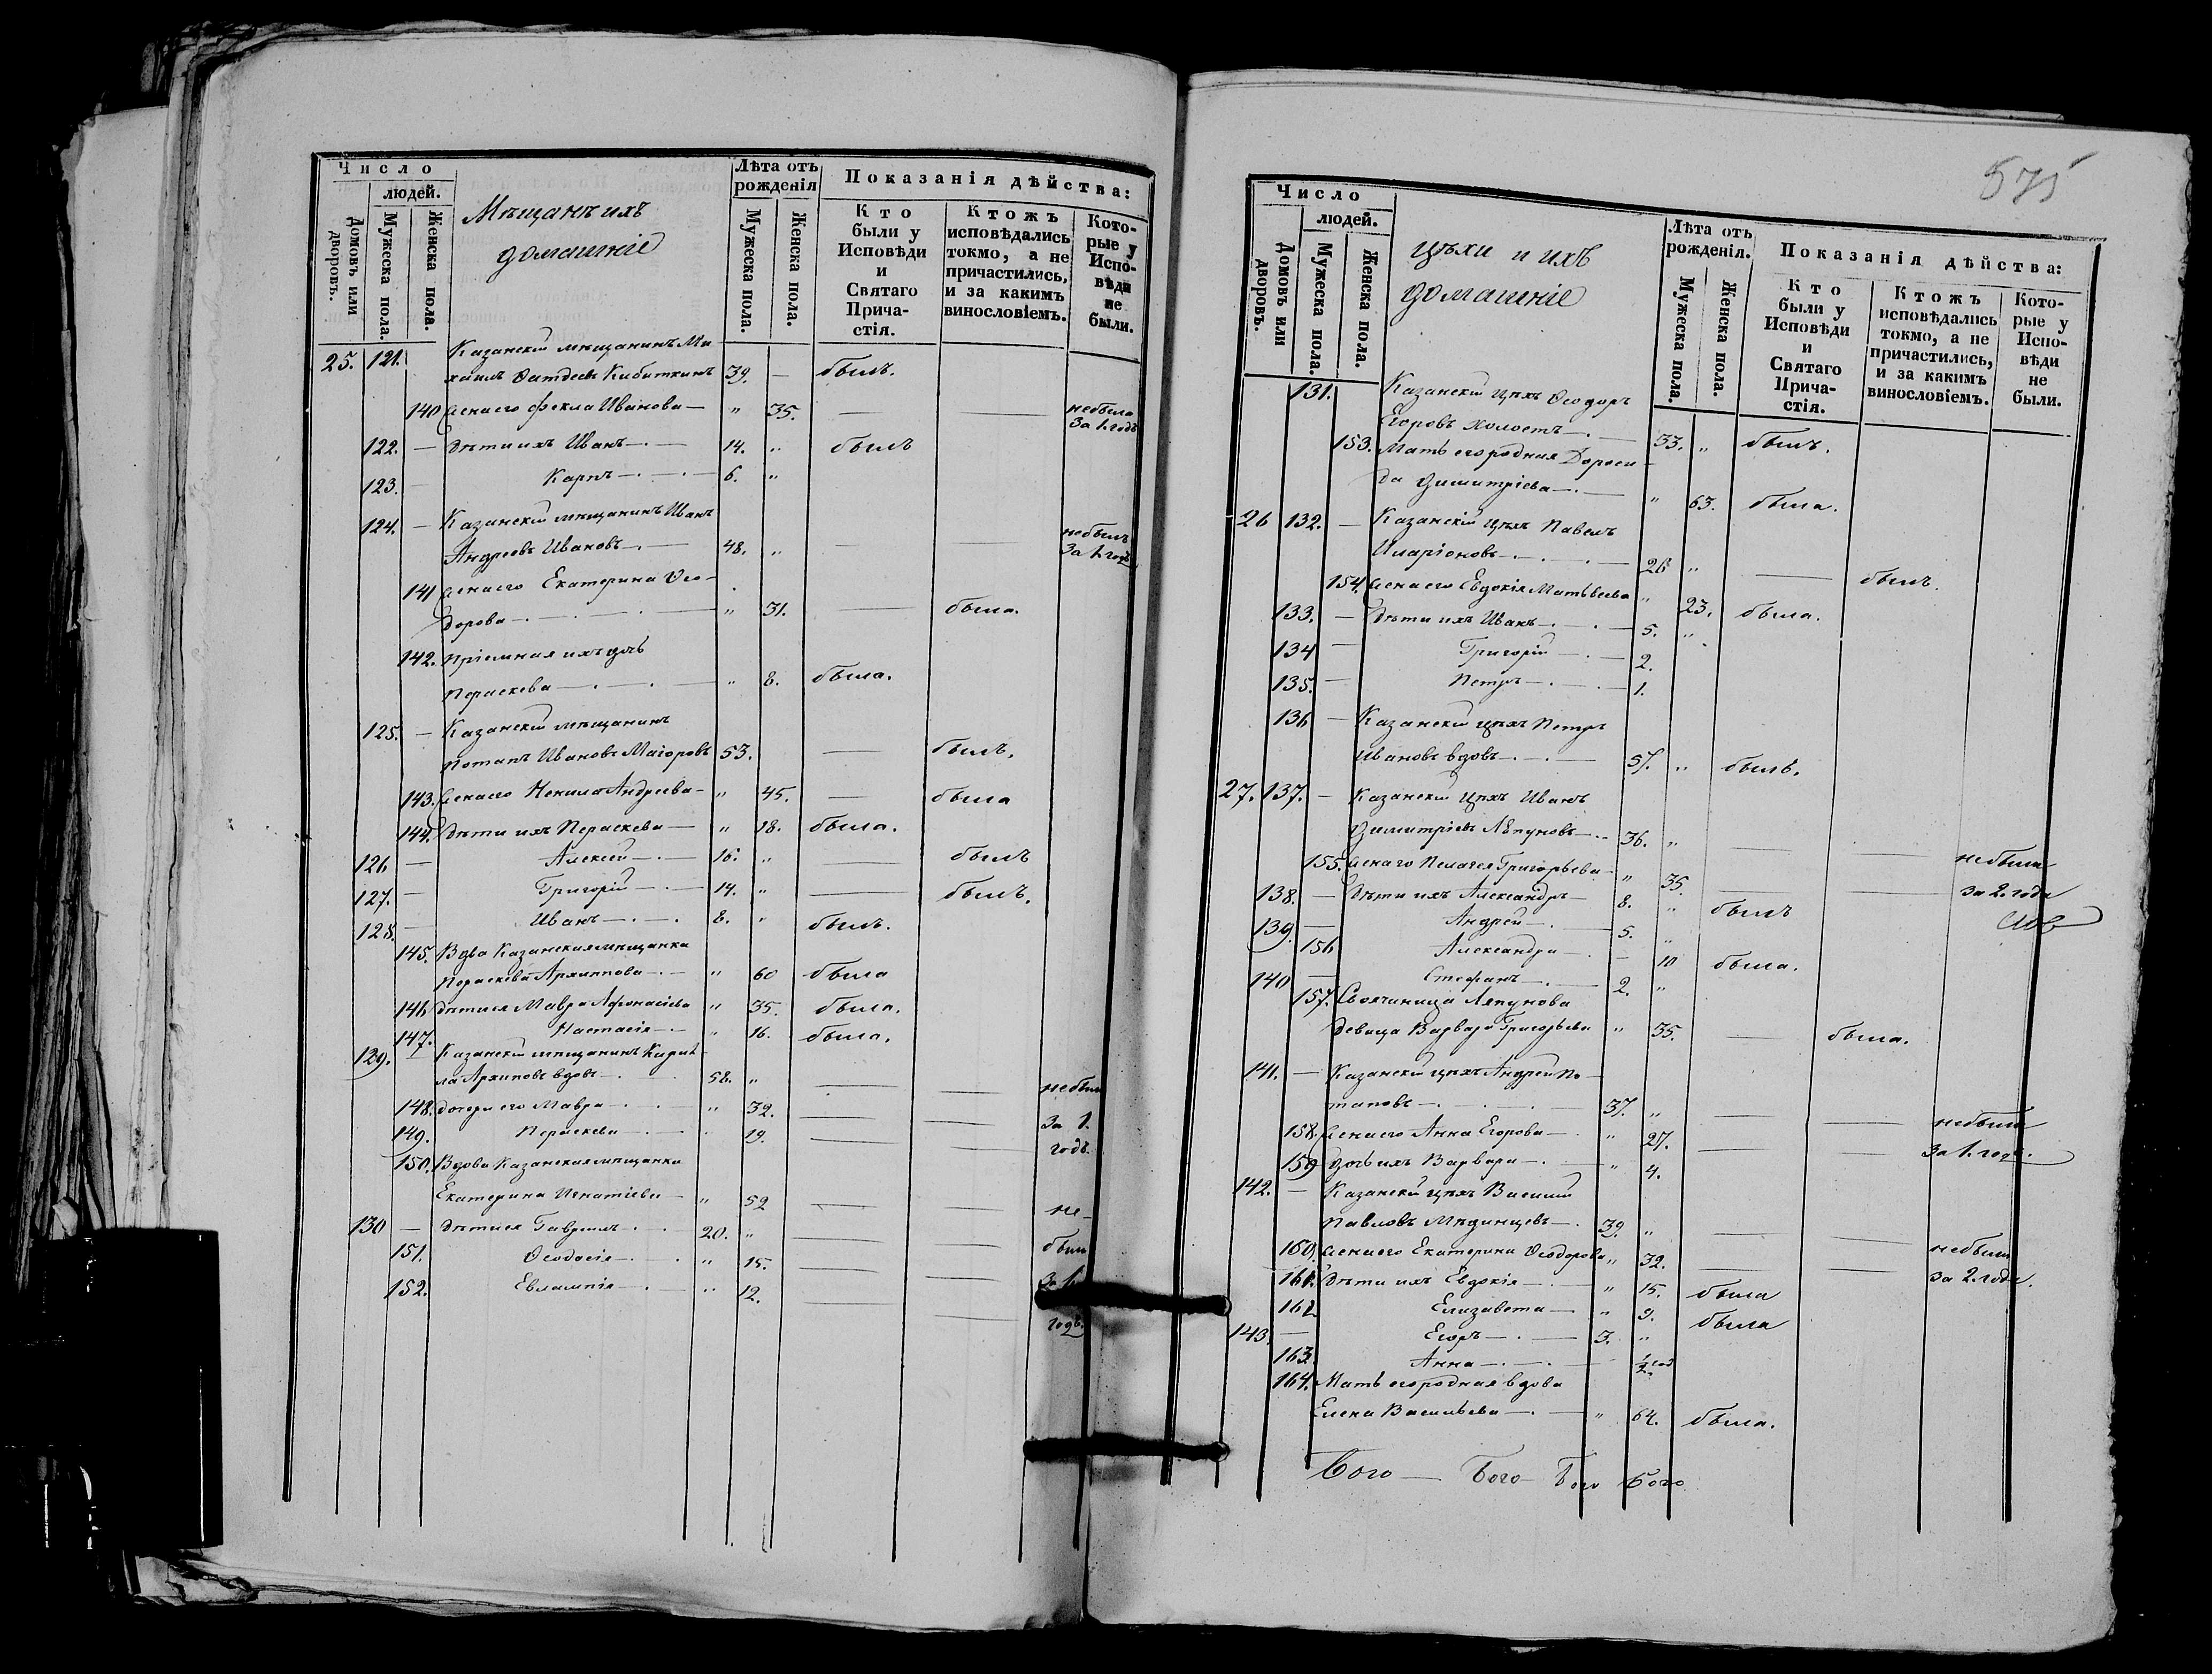 Число
людей.
Домовъ или дворовъ.
Мужеска пола.
Женска пола.
Мѣщанъ ихъ
домашніе
Лѣта отъ рожденія
Мужеска пола.
Женска пола.
Показанія дѣйства:
Кто были у Исповѣди и Святаго Причастія.
Ктожъ исповѣдались токмо, а не причастились, и за какимъ винословіемъ.
Которые у Исповѣди не были.
25. 121. Казанскій мѣщанинъ Ми-
хаилъ Фатдеевъ Кибиткинъ 39. — былъ.
140 Жена его Фекла Иванова — " 35. — — не была
за 1. годъ
122. — Дѣти ихъ Иванъ — 14. " былъ
123. — Карпъ — 6. "
124. — Казанскій мѣщанинъ Иванъ
Андреевъ Ивановъ — 48. " — — не былъ
за 1. годъ
141 Жена его Екатерина Ѳео-
дорова — " 31. — была.
142. Пріемная ихъ дочь
Параскева — " 8. была.
125. — Казанскій мѣщанинъ
Потапъ Ивановъ Маіоровъ 53. — былъ.
143. Жена его Ненила Андреева — " 45. — была
144. Дѣти ихъ Параскева — " 18. была.
126 — Алексей — 16. " — былъ
127. — Григорій — 14. " — былъ.
128. — Иванъ — 8. " былъ.
145. Вдва Казанская мѣщанка
Параскева Архиппова — " 60 была
146 Дѣти ея Мавра Афонасіева " 35. была.
147. Настасія — " 16. была.
129. — Казанскій мѣщанинъ Кирил-
ла Архиповъ вдовъ — 58. " — — не были
148. Дочери его Мавра — " 32. — — за 1.
149. Параскева — 19. — — годъ.
150. Вдова Казанская мѣщанка
Екатерина Игнатіева — " 52 — — не-
130 — Дѣти ея Гавріилъ — 20. " — — были
151. Ѳеодосія — " 15. — — за 1.
152. Евлампія — " 12. — — годъ.
575
Число
людей.
Домовъ или дворовъ.
Мужеска пола.
Женска пола.
Цѣхи и ихъ
домашніе
Лѣта отъ рожденія.
Мужеска пола.
Женска пола.
Показанія дѣйства:
Кто были у Исповѣди и Святаго Причастія.
Ктожъ исповѣдались токмо, а не причастились, и за какимъ винословіемъ.
Которые у Исповѣди не были.
131. Казанскій цѣхъ Ѳеодоръ
Егоровъ холостъ — 33. " былъ.
153. Мать его родная Дороѳе-
да Димитріева — " 63. была.
26 132. — Казанскій цѣхъ Павелъ
Иларіоновъ — 26 " — былъ.
154. Жена его Евдокія Матвѣева " 23. была.
133. — Дѣти ихъ Иванъ — 5. "
134 — Григорій — 2.
135. — Петръ — 1.
136 — Казанскій цѣхъ Петръ
Ивановъ вдовъ — 57. " былъ.
27. 137. — Казанскій цѣхъ Иванъ
Димитріевъ Ляпуновъ — 36. " — — не были
155. Жена его Пелагея Григорьева — " 35. — — за 2. года
138. — Дѣти ихъ Александръ — 8. " былъ
139. — Андрей — 5. "
156 Александра — 10 была.
140 — Стефанъ — 2. "
157. Своячиница Ляпунова
девица Варвара Григорьева " 35. — была.
141. — Казанскій цѣхъ Андрей По-
таповъ — 37. " — — не были
158. Жена его Анна Егорова — " 27. — — за 1. годъ.
159 Дочь ихъ Варвара — " 4.
142. — Казанскій цѣхъ Василій
Павловъ Мѣдинцевъ — 39. " — — не были
160. Жена его Екатерина Ѳеодорова " 32. — — за 2. года.
161. Дѣти ихъ Евдокія — " 15. была
162 Елизавета — " 9. была
143. — Егоръ — 3. "
163. Анна — 1/2 год
164. Мать его родная вдова
Елена Васильева — " 64. была.